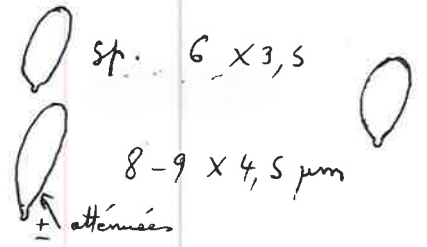 sp. 6 × 3,5
8-9 × 4,5 µm
± atténuées